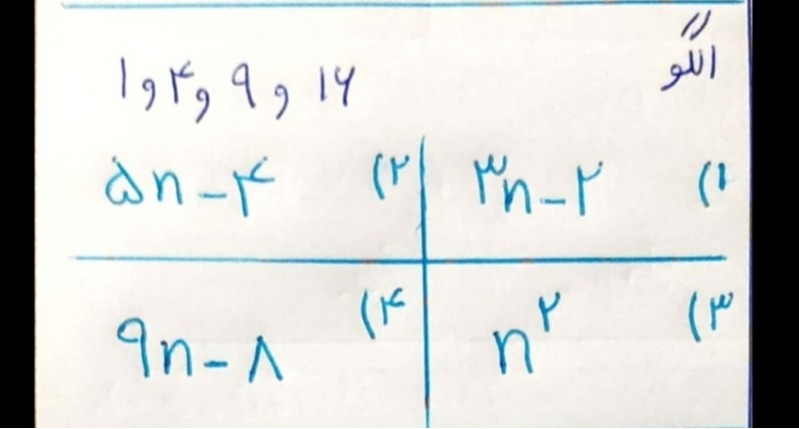 الگو
۱۶ و ۹ و ۴ و ۱
۱) ۳n-۲
۲) ۵n-۴
۳) n^۲
۴) ۹n-۸